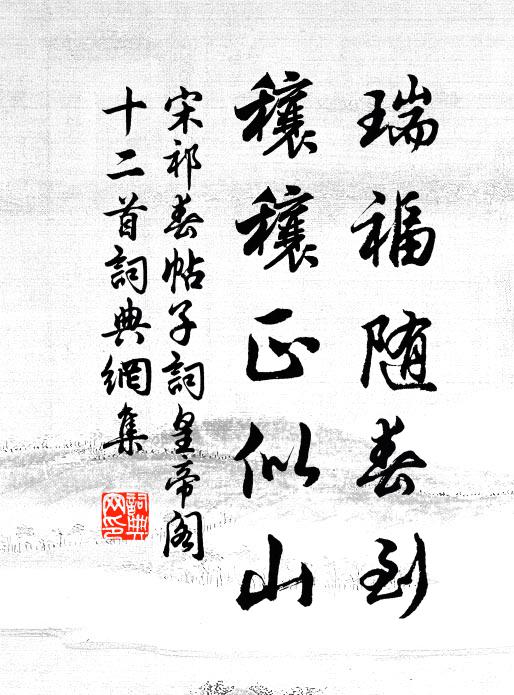 瑞福随春到
穰穰正似山
宋祁春帖子詞皇帝閣
十二首詞典網集
詞典網印